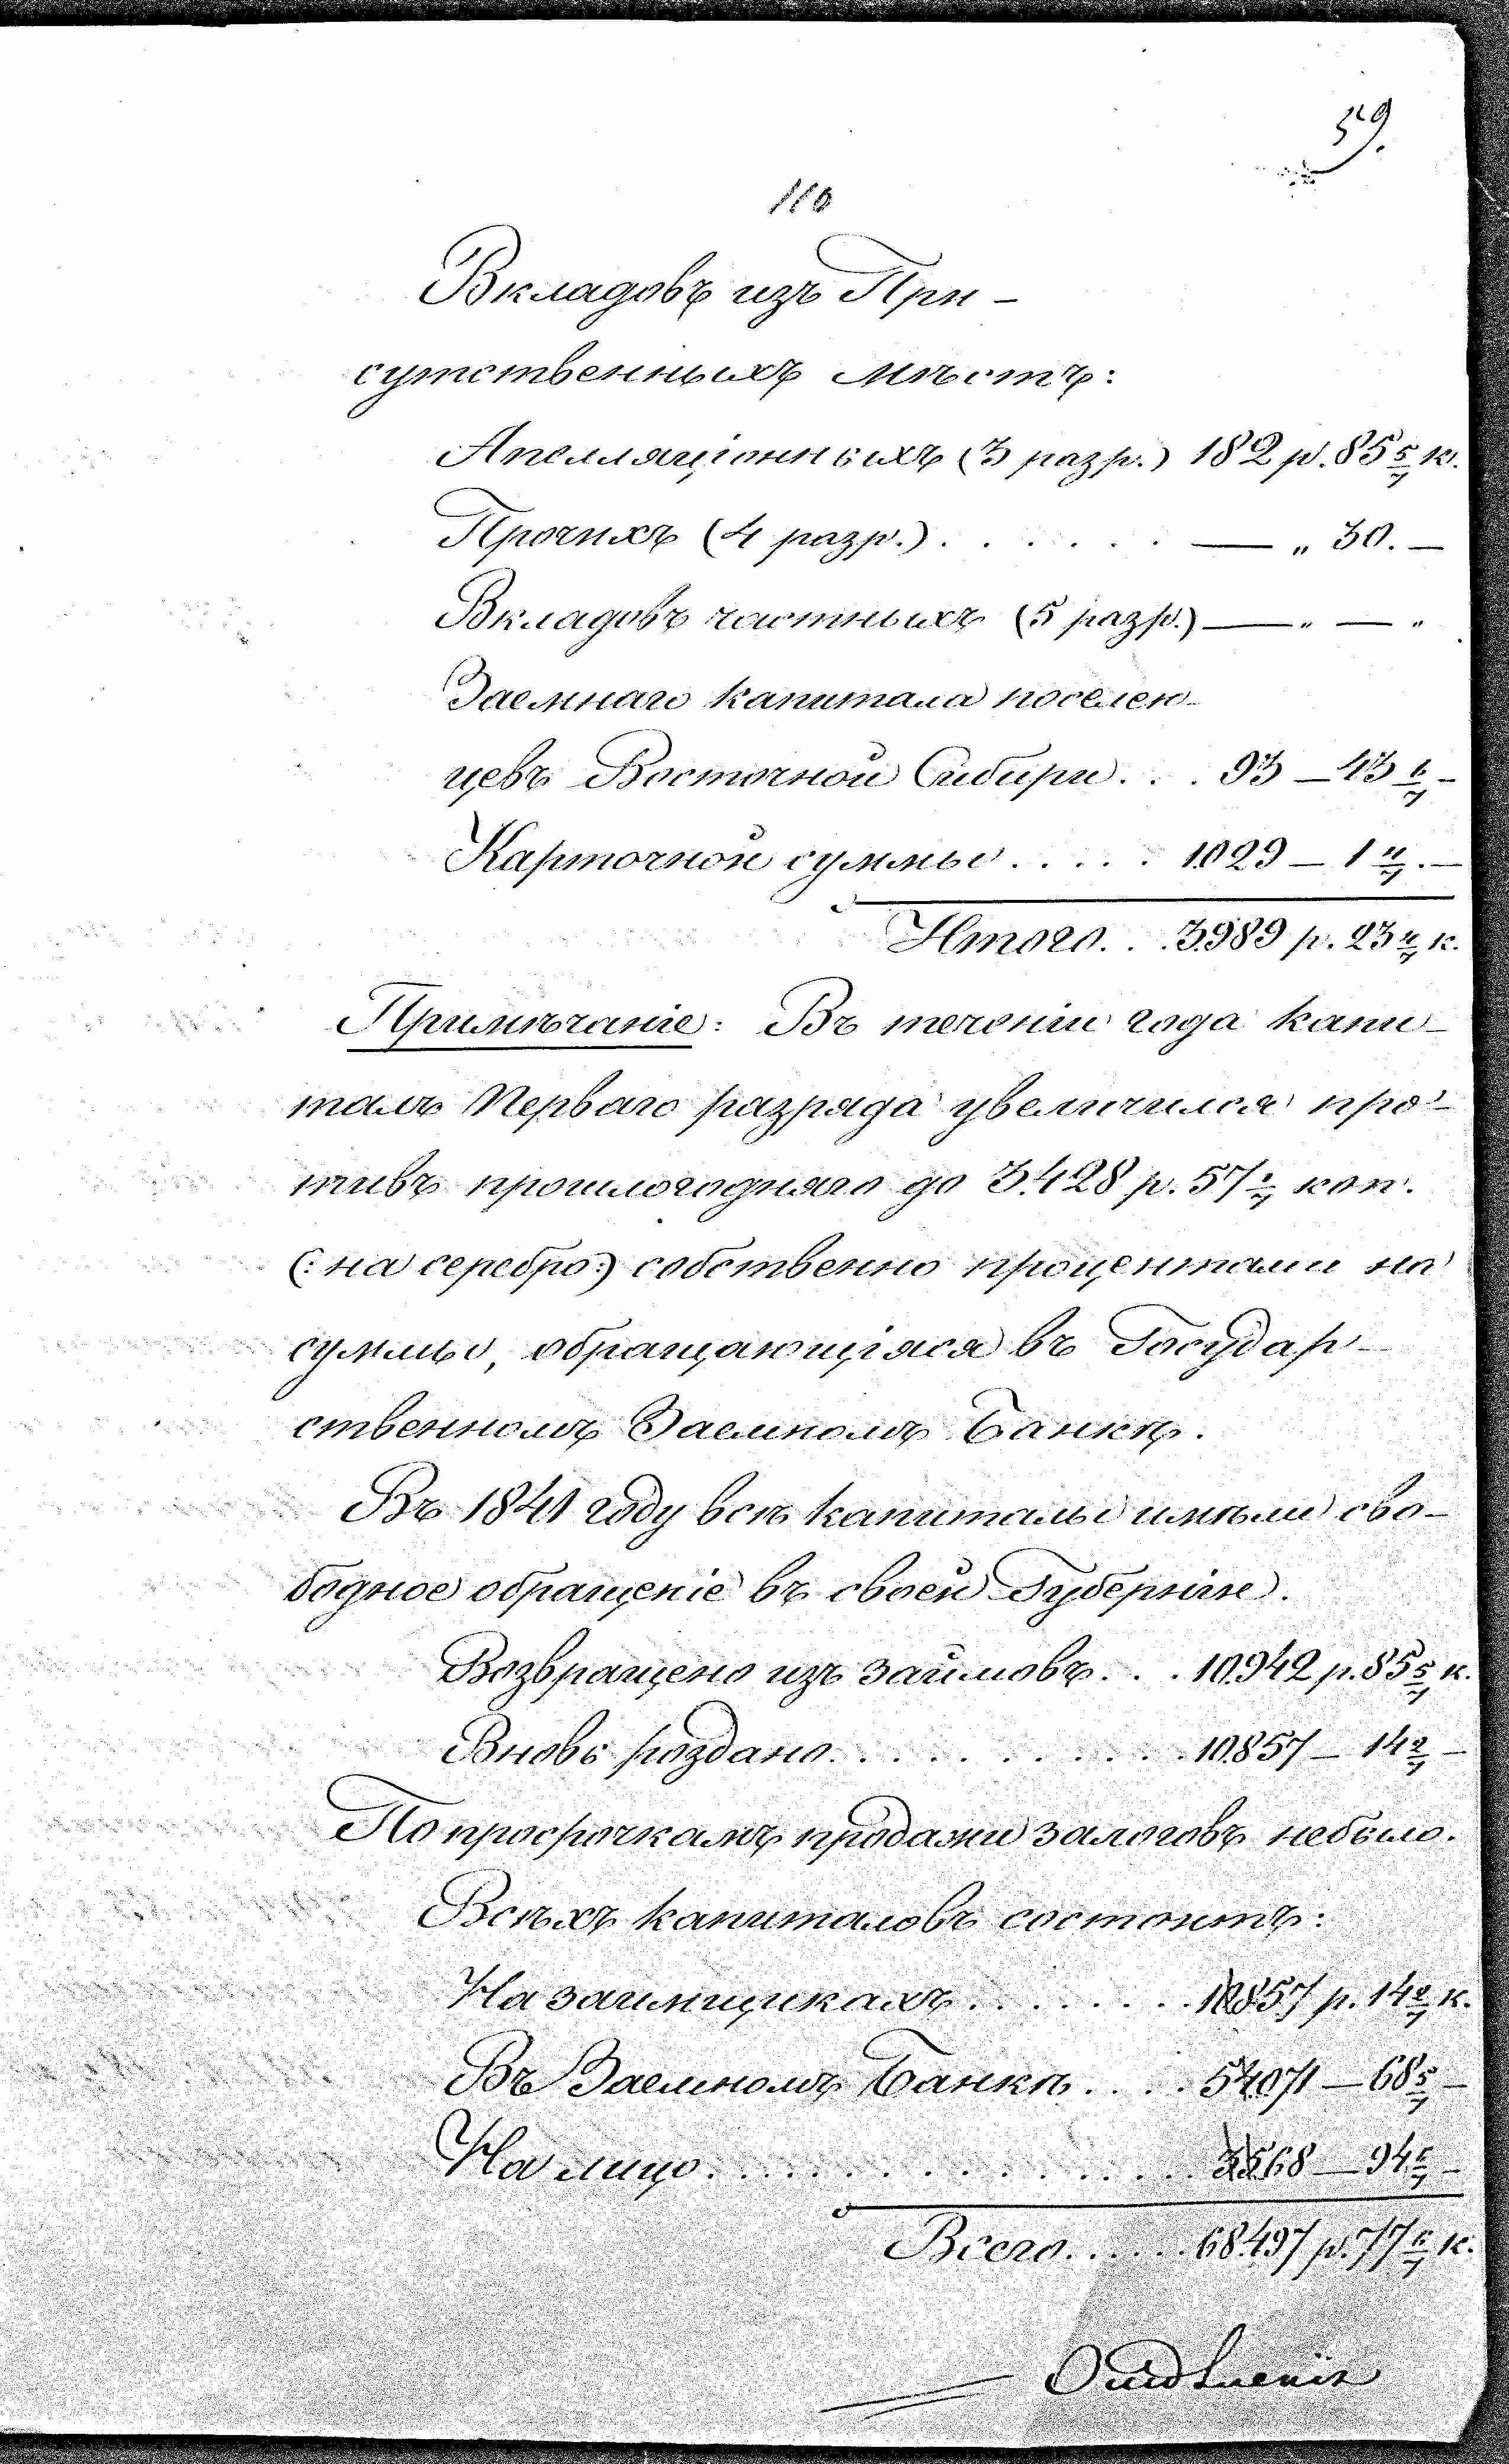 59.
110
Вкладовъ изъ При-
сутственныхъ мѣстъ:
Апелляціонныхъ (3 разр.) 182 р. 85 5/7 к.
Прочихъ (4 разр.) . . . . . . — „ 30. —
Вкладовъ частныхъ (5 разр.) — „ — „
Заемнаго капитала поселен-
цевъ Восточной Сибири . . . 93 — 43 6/7 —
Карточной суммы . . . . . 1.029 — 1 4/7 . —
Итого . . . 3.989 р. 23 4/7 к.
Примѣчаніе: Въ теченіи года капи-
талъ перваго разряда увеличился про-
тивъ прошлогодняго до 3.428 р. 57 1/7 коп.
(: на серебро :) собственно процентами на
суммы, обращающіяся въ Государ-
ственномъ Заемномъ Банкѣ.
Въ 1841 году всѣ капиталы имѣли сво-
бодное обращеніе въ своей Губерніи.
Возвращено изъ займовъ . . . 10.942 р. 85 5/7 к.
Вновь роздано . . . . . . . . . . 10.857 — 14 2/7 —
По просрочкамъ продажи залоговъ небыло.
Всѣхъ капиталовъ состоитъ:
На заимщикахъ . . . . . . . . 10.857 р. 14 2/7 к.
Въ Заемномъ Банкѣ . . . . 54.071 — 68 5/7 —
На лицо . . . . . . . . . . . . . . . 3.568 — 94 6/7 —
Всего . . . . . . 68.497 р. 77 6/7 к.